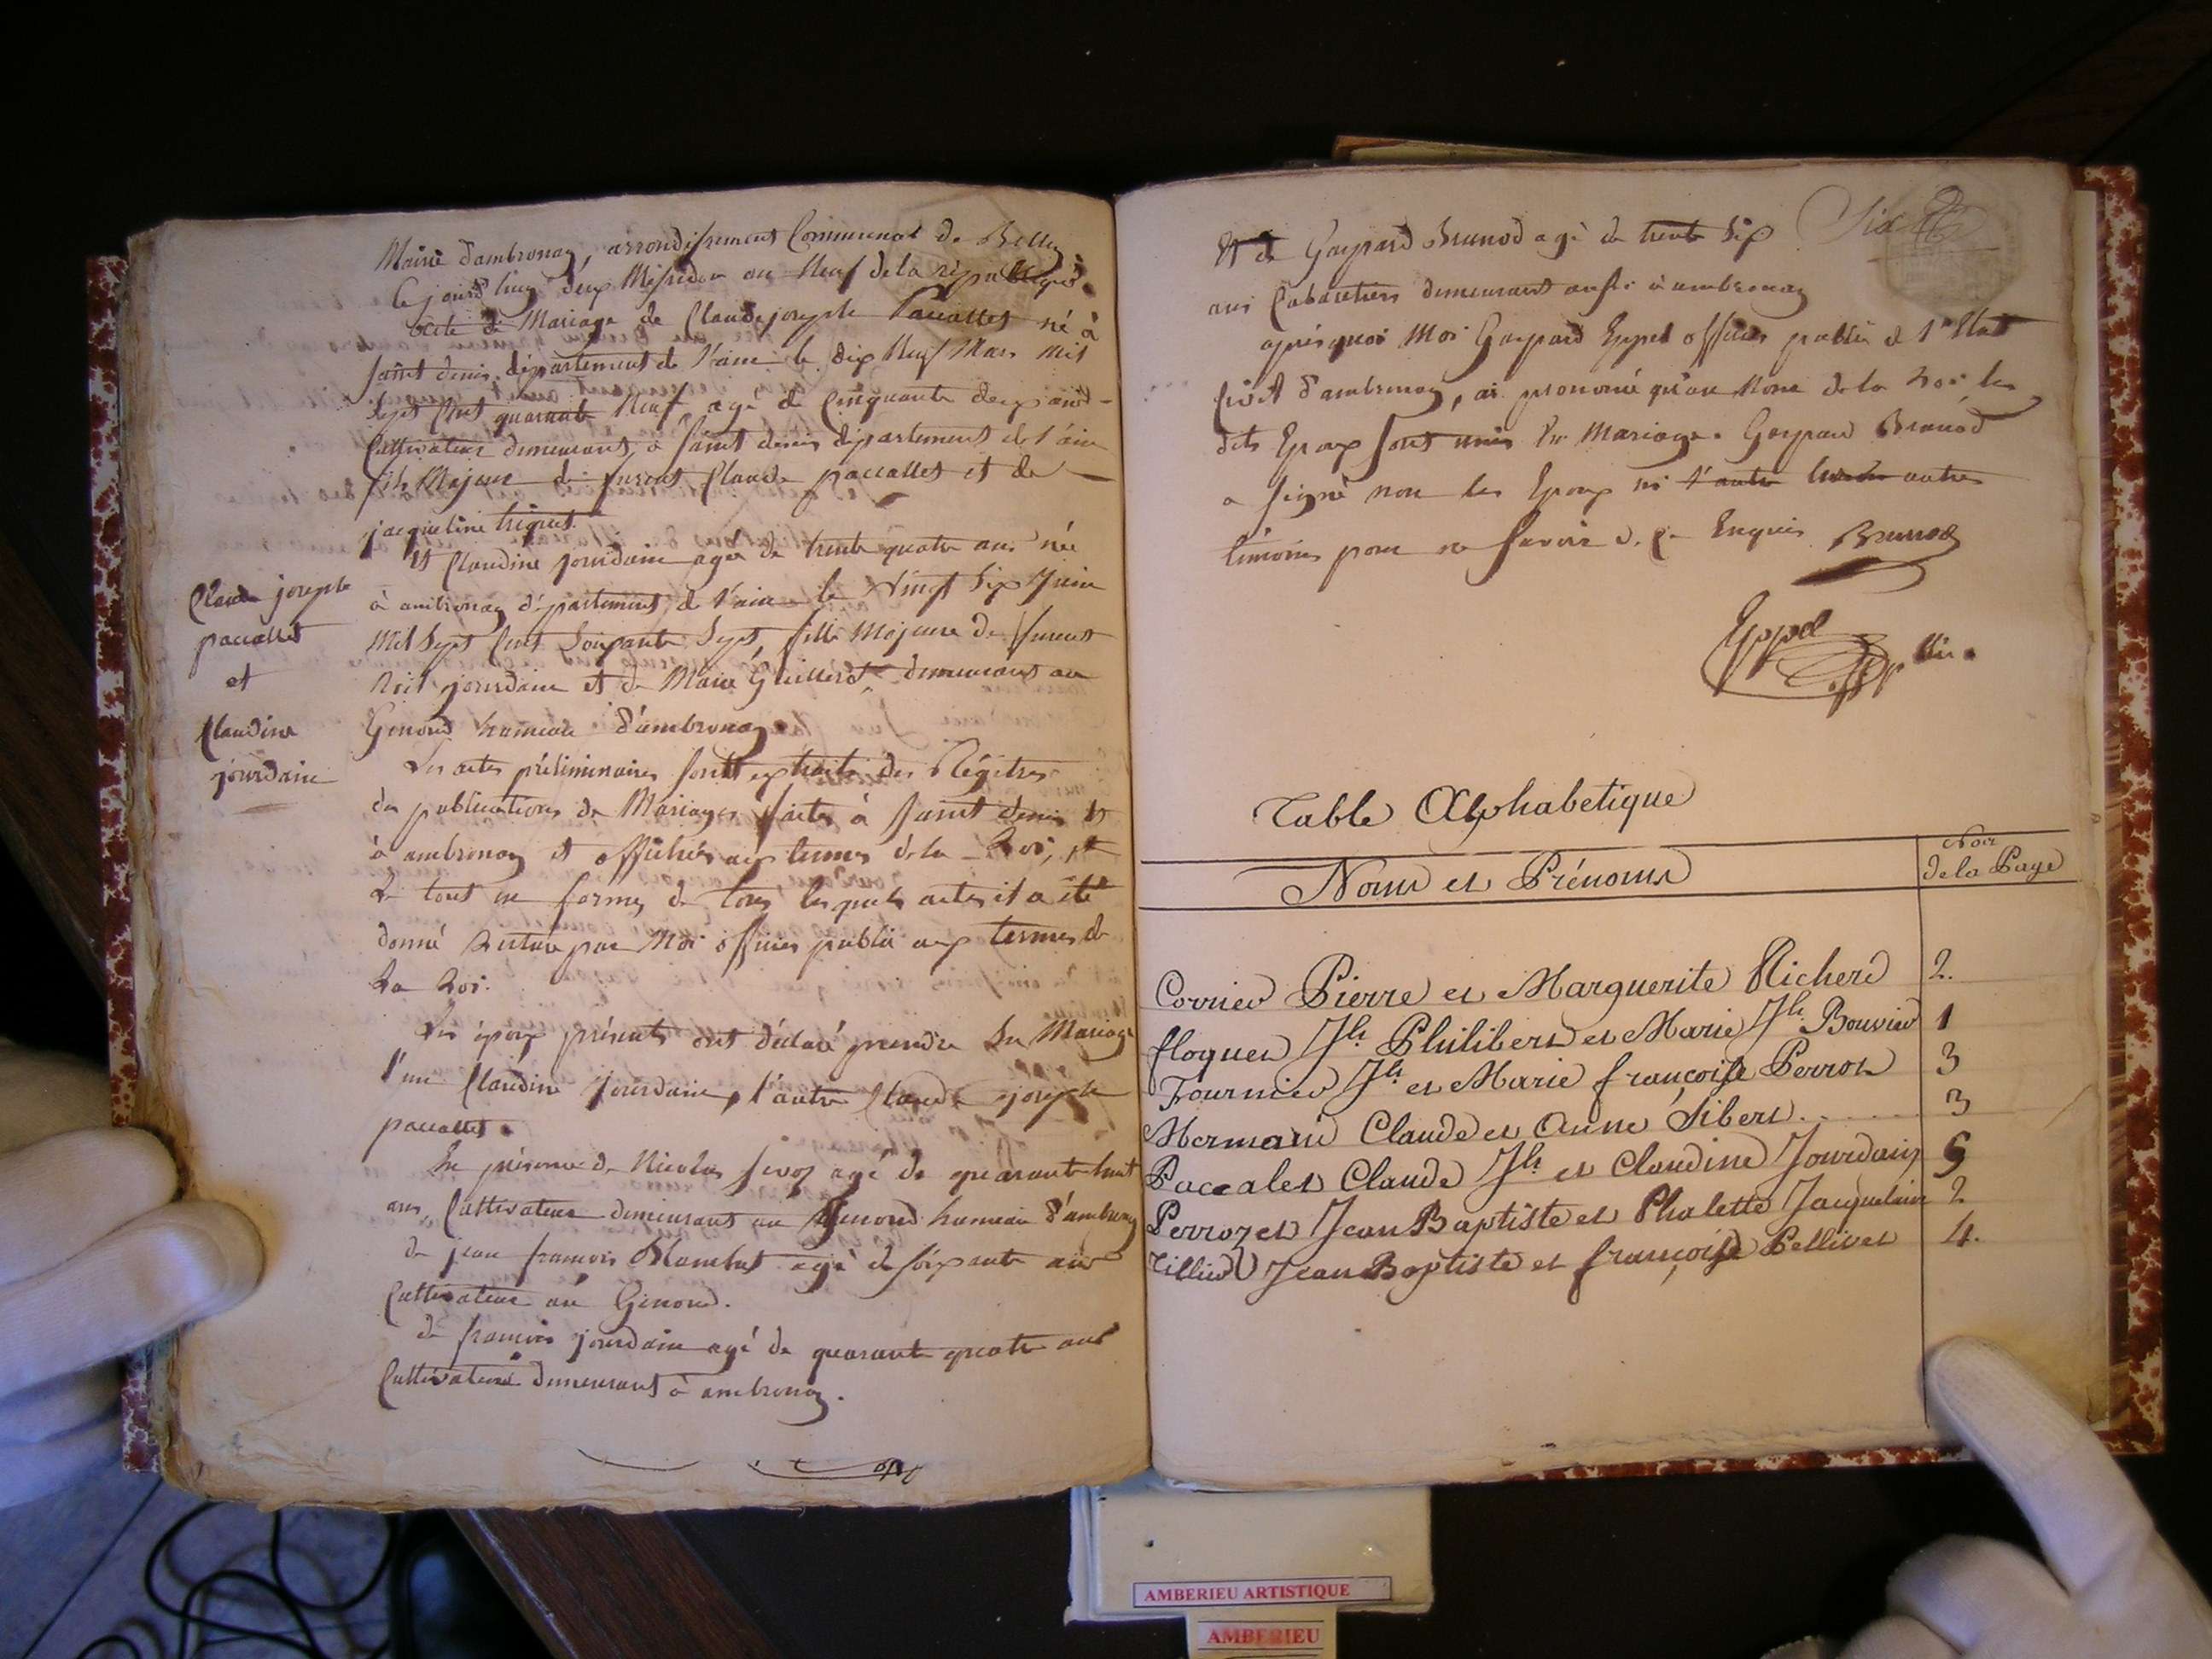 Mairie d'ambronay, arrondissement Communal de Belley
Ce jourd'huy deux Messidor an Neuf de la république.
acte de Mariage de Claude joseph Paccallet né à
saint denis département de l'ain le dix Neuf Mars mil
sept Cent quarante Neuf agé de Cinquante deux ans
Cultivateur demeurant à saint denis département de l'ain
fils Majeur de furent Claude paccallet et de
jacqueline
Et Claudine jourdain agée de trente quatre ans née
à ambronay département de l'ain le vingt six Juin
Mil Sept Cent Soixante Sept, fille Majeure de furent
jourdain et de Marie Guillerot demeurant au
Genoud hameau d'ambronay
Claude joseph
paccallet
et
Claudine
jourdain
Les actes préliminaires sont extraits des Régitres
de publications de Mariages faites à saint denis et
à ambronay et affichés aux termes de la Loi, et
Le tout en forme, de tous lesquels actes il a été
donné Lecture par Moi officier public aux termes de
La Loi.
Les époux présents ont déclaré prendre En Mariage
l'un Claudine jourdain, l'autre Claude joseph
paccallet.
En présence de Nicolas agé de quarante huit
ans, Cultivateur demeurant au Genoud hameau d'ambronay
de jean francois agé de soixante ans
Cultivateur au Genoud.
de francois jourdain agé de quarante quatre ans
Cultivateur demeurant à ambronay.
Six
Et de Gaspard Brunod agé de trente Six
ans Cabaretier demeurant aussi à ambronay
après quoi Moi Gaspard Eppel officier public de l'Etat
Civil d'ambronay, ai prononcé qu'au Nom de la Loi les
dits Epoux sont unis En Mariage. Gaspard Brunod
a signé non les Epoux ni l'autre autres
témoins pour ne savoir de ce Enquis Brunod
Eppel
off. p. blic.
Table Alphabetique
Noms et Prénoms
Nos
de la Page
Corrier Pierre et Marguerite Richerd 2.
floquet Jh Philibert et Marie Jh Bouvier 1
Fournier Jh et Marie françoise Perrot 3
Mermani Claude et Anne Sibert...... 3
Paccalet Claude Jh et Claudine Jourdain 5
Perrozet Jean Baptiste et Phalette Jacquelain 2
Tillier Jean Baptiste et françoise Pellivet 4.
AMBERIEU ARTISTIQUE
AMBERIEU